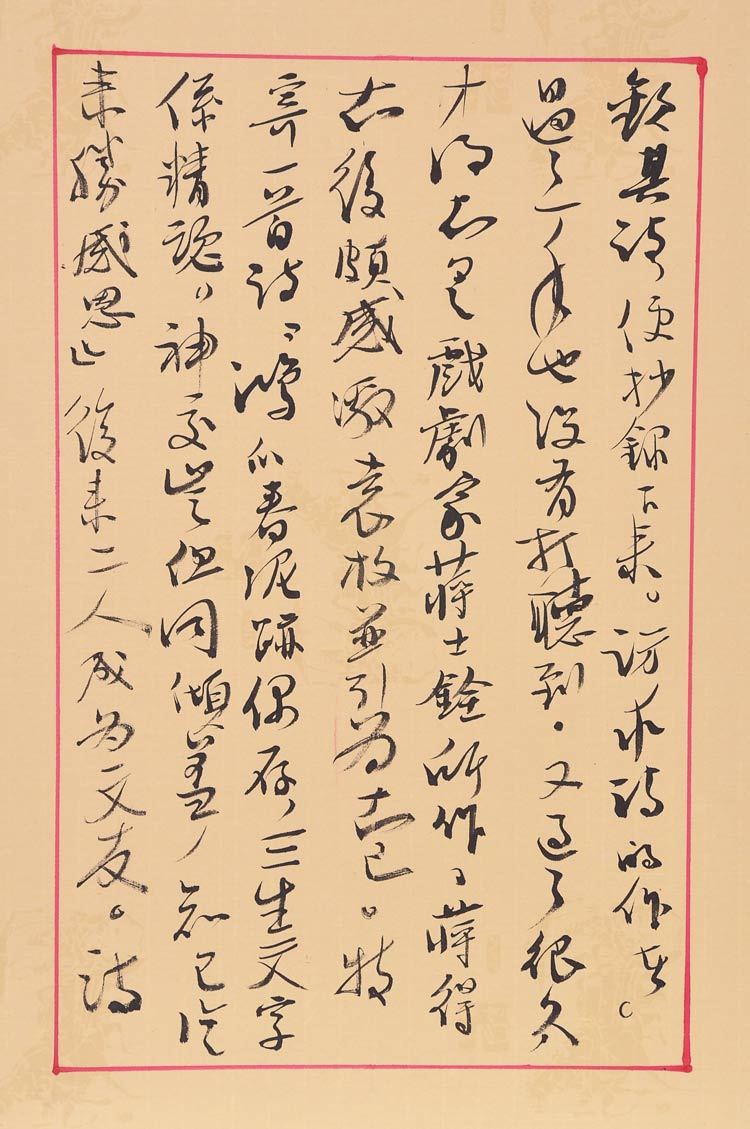 欽其詩,便抄錄下来。訪求詩的作者。
過了一年也没有打聽到。又过了很久,
才得知是戲劇家蔣士銓所作,蔣得
知後頗感激袁枚並引为知己。特
寄一首詩,鴻爪春泥跡偶存,三生文字
係精魂,神交豈但同傾蓋,知己從
来勝感恩」後来二人成为文友。詩